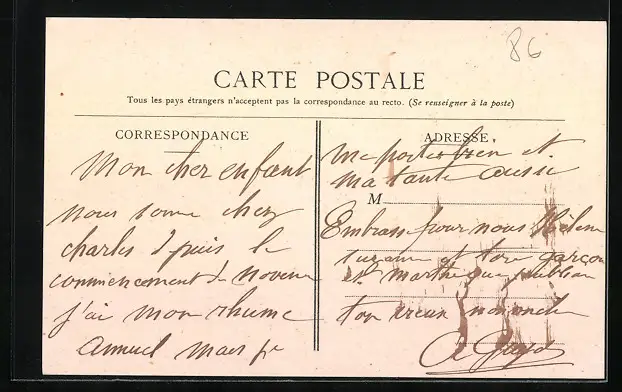 86
CARTE POSTALE
Tous les pays étrangers n'acceptent pas la correspondance au recto. (Se renseigner à la poste)
CORRESPONDANCE
Mon cher enfant
nous some chez
charles dpuis le
commencement de novem
j'ai mon rhume
annuel mais
ADRESSE
me porte bien et
ma tante aussi
M
Embrass pour nous Hélène
suzanne et ton garçon
et marthe que
ton vieux